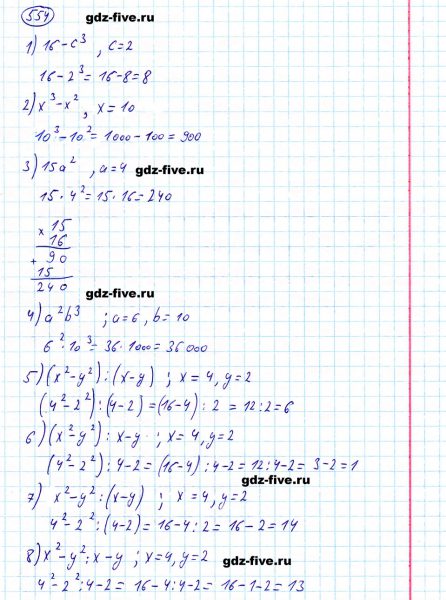 554 gdz-five.ru
1) 16 - c³, c = 2
16 - 2³ = 16 - 8 = 8
2) x³ - x², x = 10
10³ - 10² = 1000 - 100 = 900
3) 15a², a = 4 gdz-five.ru
15 · 4² = 15 · 16 = 240
× 15
16
+ 90
15
240
gdz-five.ru
4) a²b³ ; a = 6, b = 10
6² · 10³ = 36 · 1000 = 36000
gdz-five.ru
5) (x² - y²) : (x - y) ; x = 4, y = 2
(4² - 2²) : (4 - 2) = (16 - 4) : 2 = 12 : 2 = 6
6) (x² - y²) : x - y ; x = 4, y = 2
(4² - 2²) : 4 - 2 = (16 - 4) : 4 - 2 = 12 : 4 - 2 = 3 - 2 = 1
gdz-five.ru
7) x² - y² : (x - y) ; x = 4, y = 2
4² - 2² : (4 - 2) = 16 - 4 : 2 = 16 - 2 = 14
8) x² - y² : x - y ; x = 4, y = 2 gdz-five.ru
4² - 2² : 4 - 2 = 16 - 4 : 4 - 2 = 16 - 1 - 2 = 13